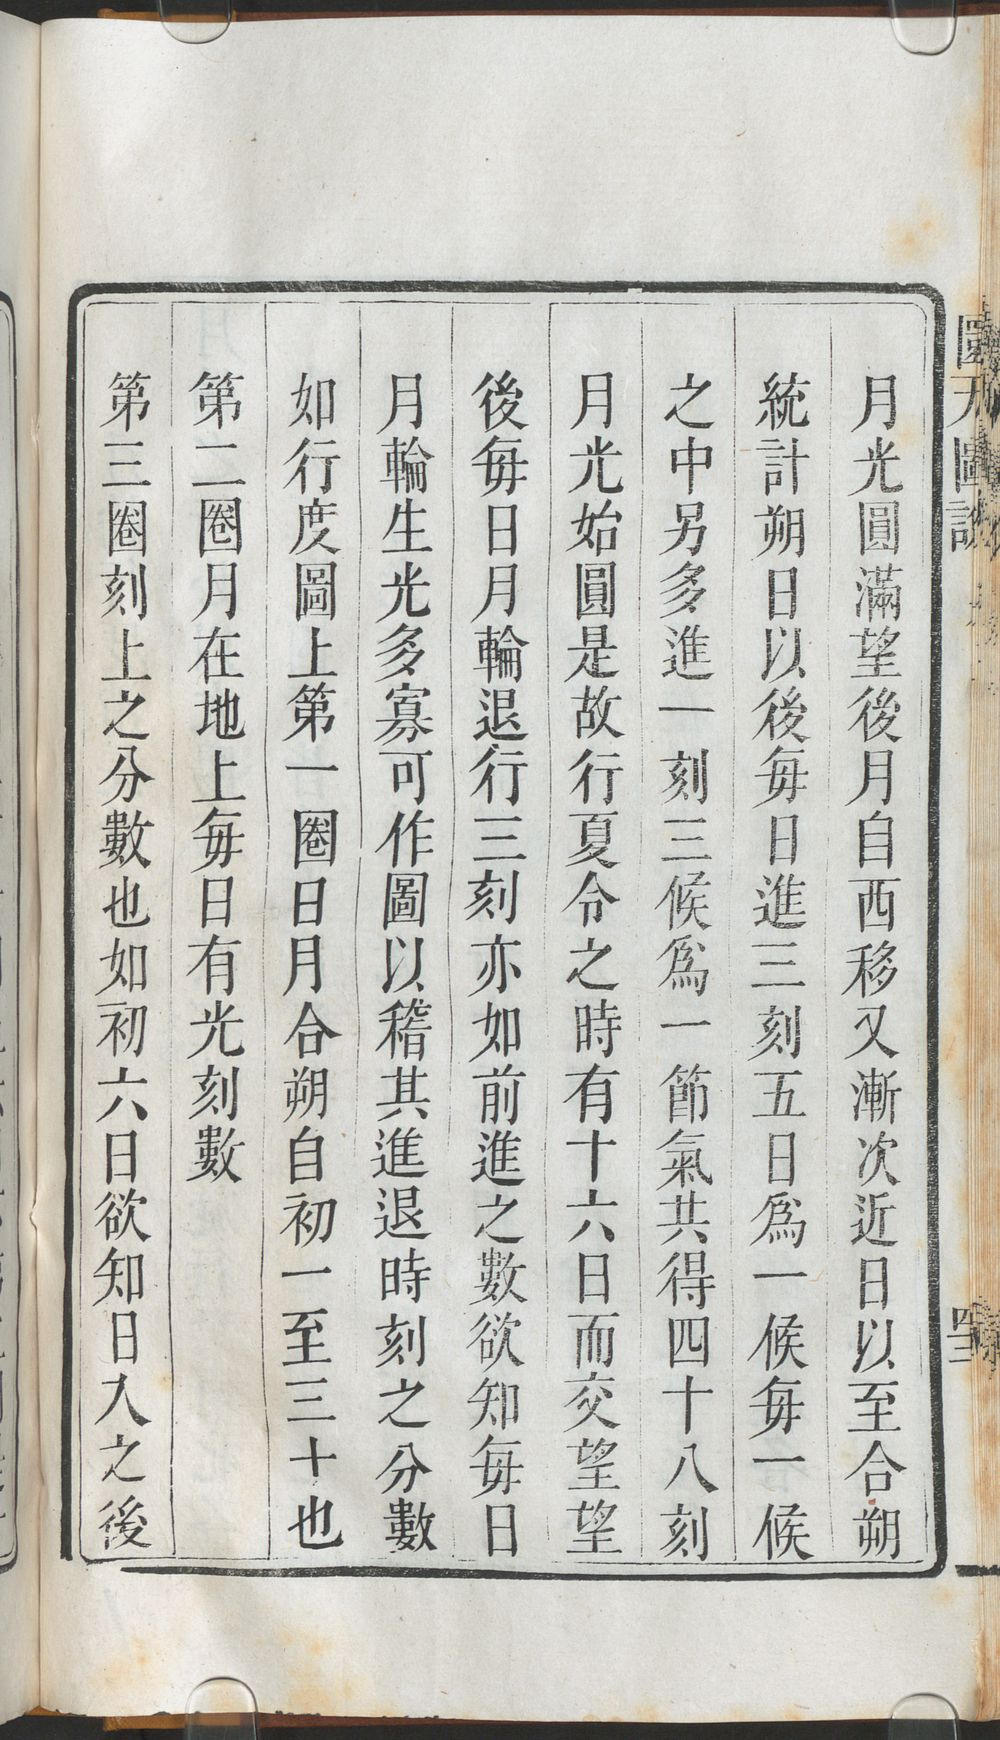 月光圓滿望後月自西移又漸次近日以至合朔
統計朔日以後每日進三刻五日爲一候每一候
之中另多進一刻三候爲一節氣共得四十八刻
月光始圓是故行夏令之時有十六日而交望望
後每日月輪退行三刻亦如前進之數欲知每日
月輪生光多寡可作圖以稽其進退時刻之分數
如行度圖上第一圈日月合朔自初一至三十也
第二圈月在地上每日有光刻數
第三圈刻上之分數也如初六日欲知日入之後